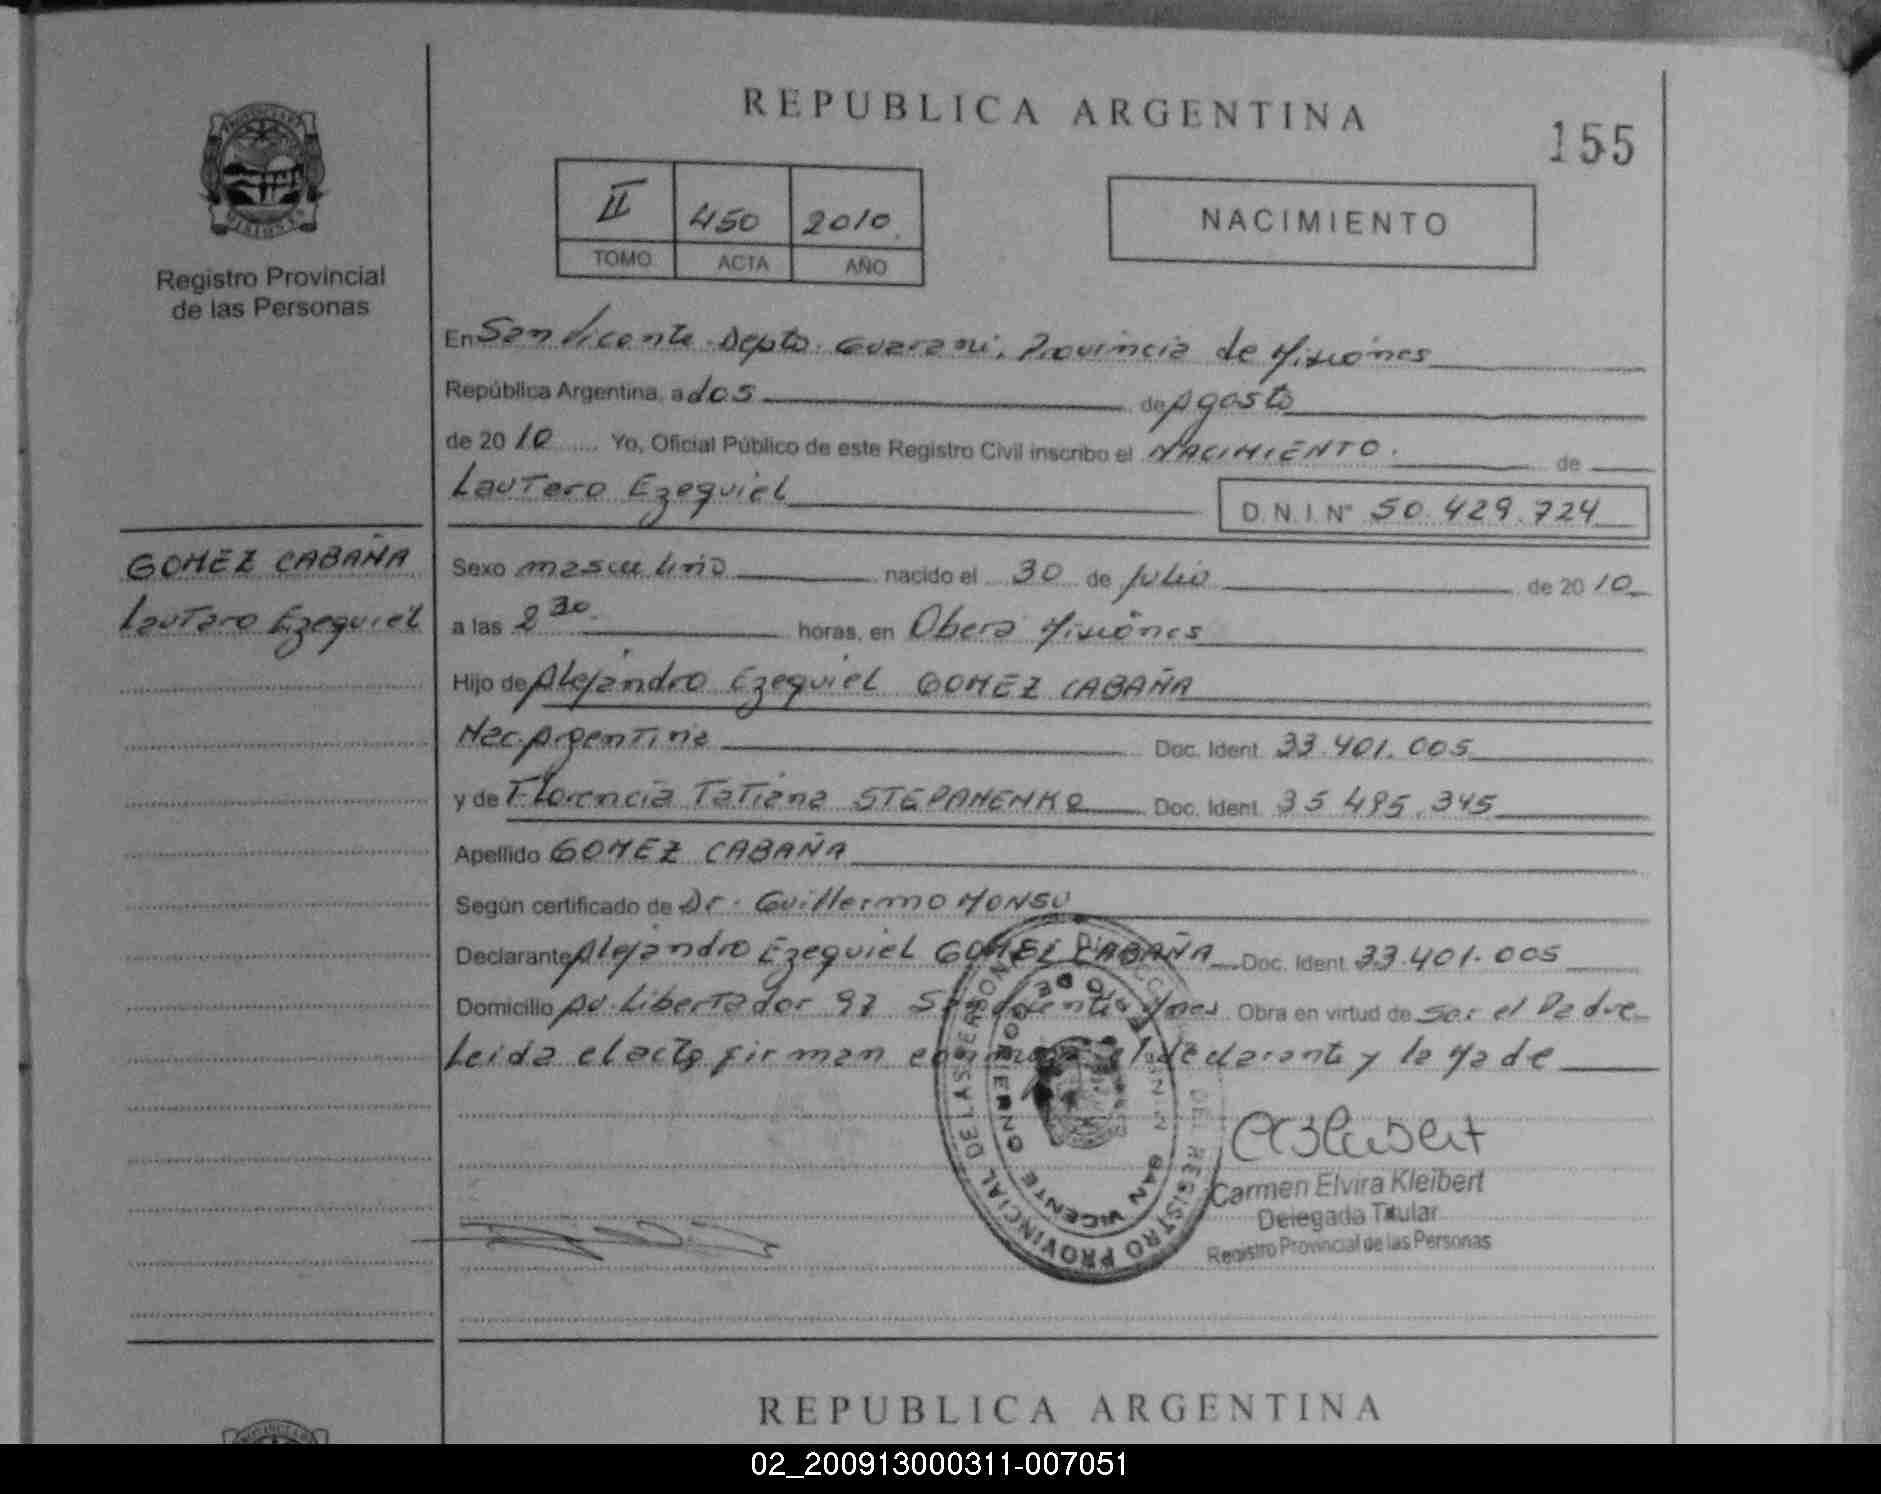 REPUBLICA ARGENTINA
155
II 450 2010
TOMO ACTA AÑO
NACIMIENTO
Registro Provincial
de las Personas
En San Vicente Depto. Guarani, Provincia de Misiones
República Argentina, a dos de Agosto
de 2010 Yo, Oficial Público de este Registro Civil inscribo el NACIMIENTO. de
Lautaro Ezequiel D.N.I. N° 50.429.724
GOMEZ CABAÑA
Lautaro Ezequiel
Sexo masculino nacido el 30 de Julio de 2010
a las 2 30 horas, en Obera Misiones
Hijo de Alejandro Ezequiel GOMEZ CABAÑA
Nac. Argentina Doc. Ident. 33.401.005
y de Florencia Tatiana STEPANENKO Doc. Ident. 35.495.345
Apellido GOMEZ CABAÑA
Según certificado de Dr. Guillermo MONSU
Declarante Alejandro Ezequiel GOMEZ CABAÑA Doc. Ident. 33.401.005
Domicilio Av. Libertador 97 San Vicente Obra en virtud de ser el Padre
Leida el acta firman el declarante y la Made
REGISTRO PROVINCIAL DE LAS PERSONAS
GOBIERNO SAN VICENTE
Carmen Elvira Kleibert
Delegada Titular
Registro Provincial de las Personas
REPUBLICA ARGENTINA
02_200913000311-007051